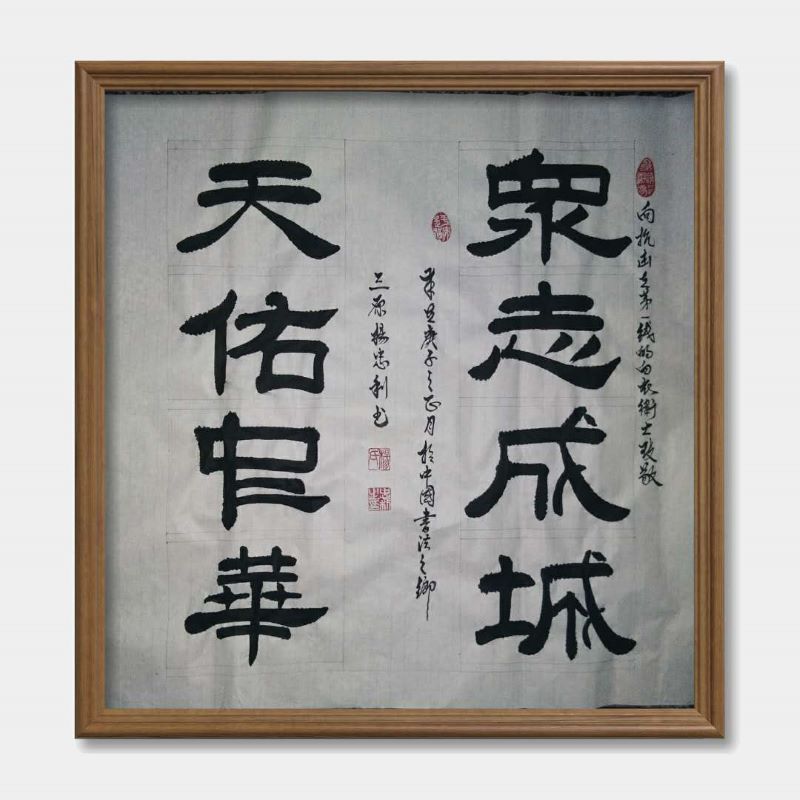 向抗第一線的白衣衛士致敬
眾志成城
庚子之正月於中國書法之鄉
三原楊忠利书
天佑中華